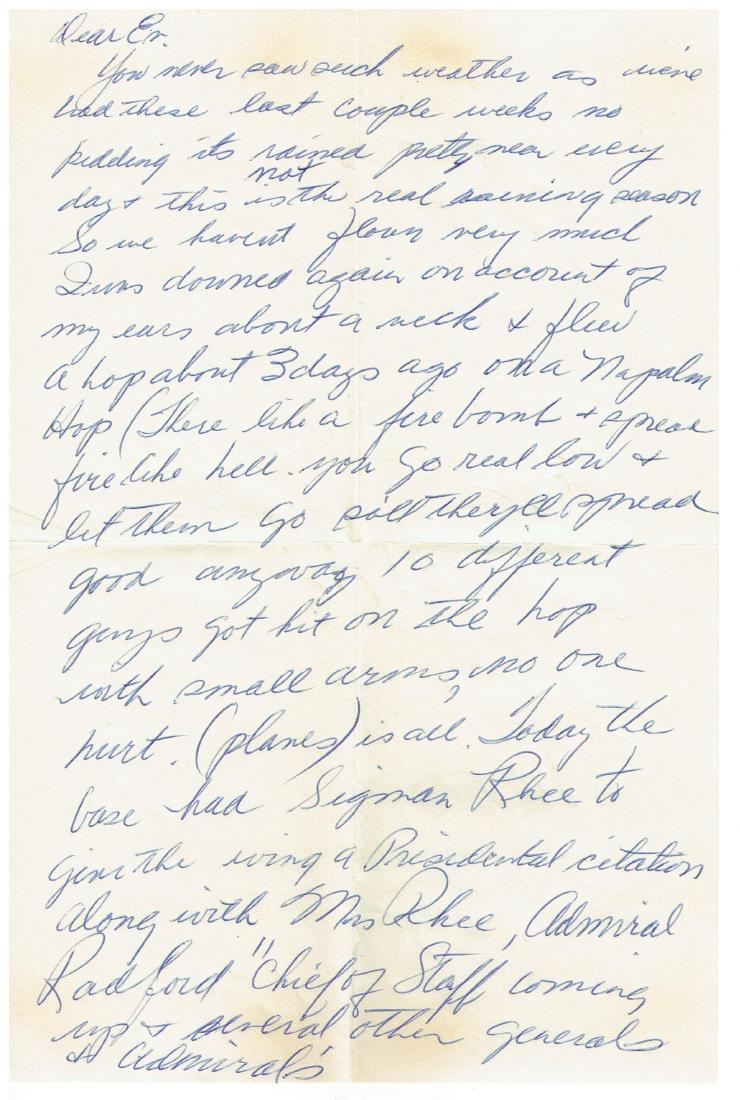 Dear Ev.
You never saw such weather as we've
had these last couple weeks no
kidding its rained pretty near every
day & this is not the real raining season
So we havent flown very much
I was downed again on account of
my ears about a week & flew
a hop about 3 days ago on a Napalm
Hop (There like a fire bomb & spread
fire like hell. you go real low &
let them go so they'll spread
good anyway 10 different
guys got hit on the hop
with small arms, no one
hurt. (planes) is all. Today the
base had Sigman Rhee to
give the wing a Presidental citation
along with Mrs Rhee, Admiral
Radford "Chief of Staff coming
up & several other generals
& Admiral's